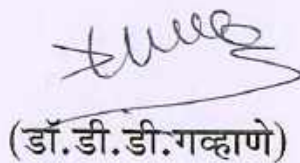 (डॉ.डी.डी.गव्हाणे)